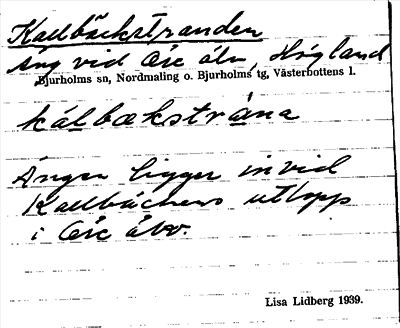 Kallbäckstranden
Äng vid Öre älv, Högland
Bjurholms sn, Nordmaling o. Bjurholms tg, Västerbottens l.
kálbækstrána
Ängen ligger invid
Kallbäckens utlopp
i Öre älv.
Lisa Lidberg 1939.